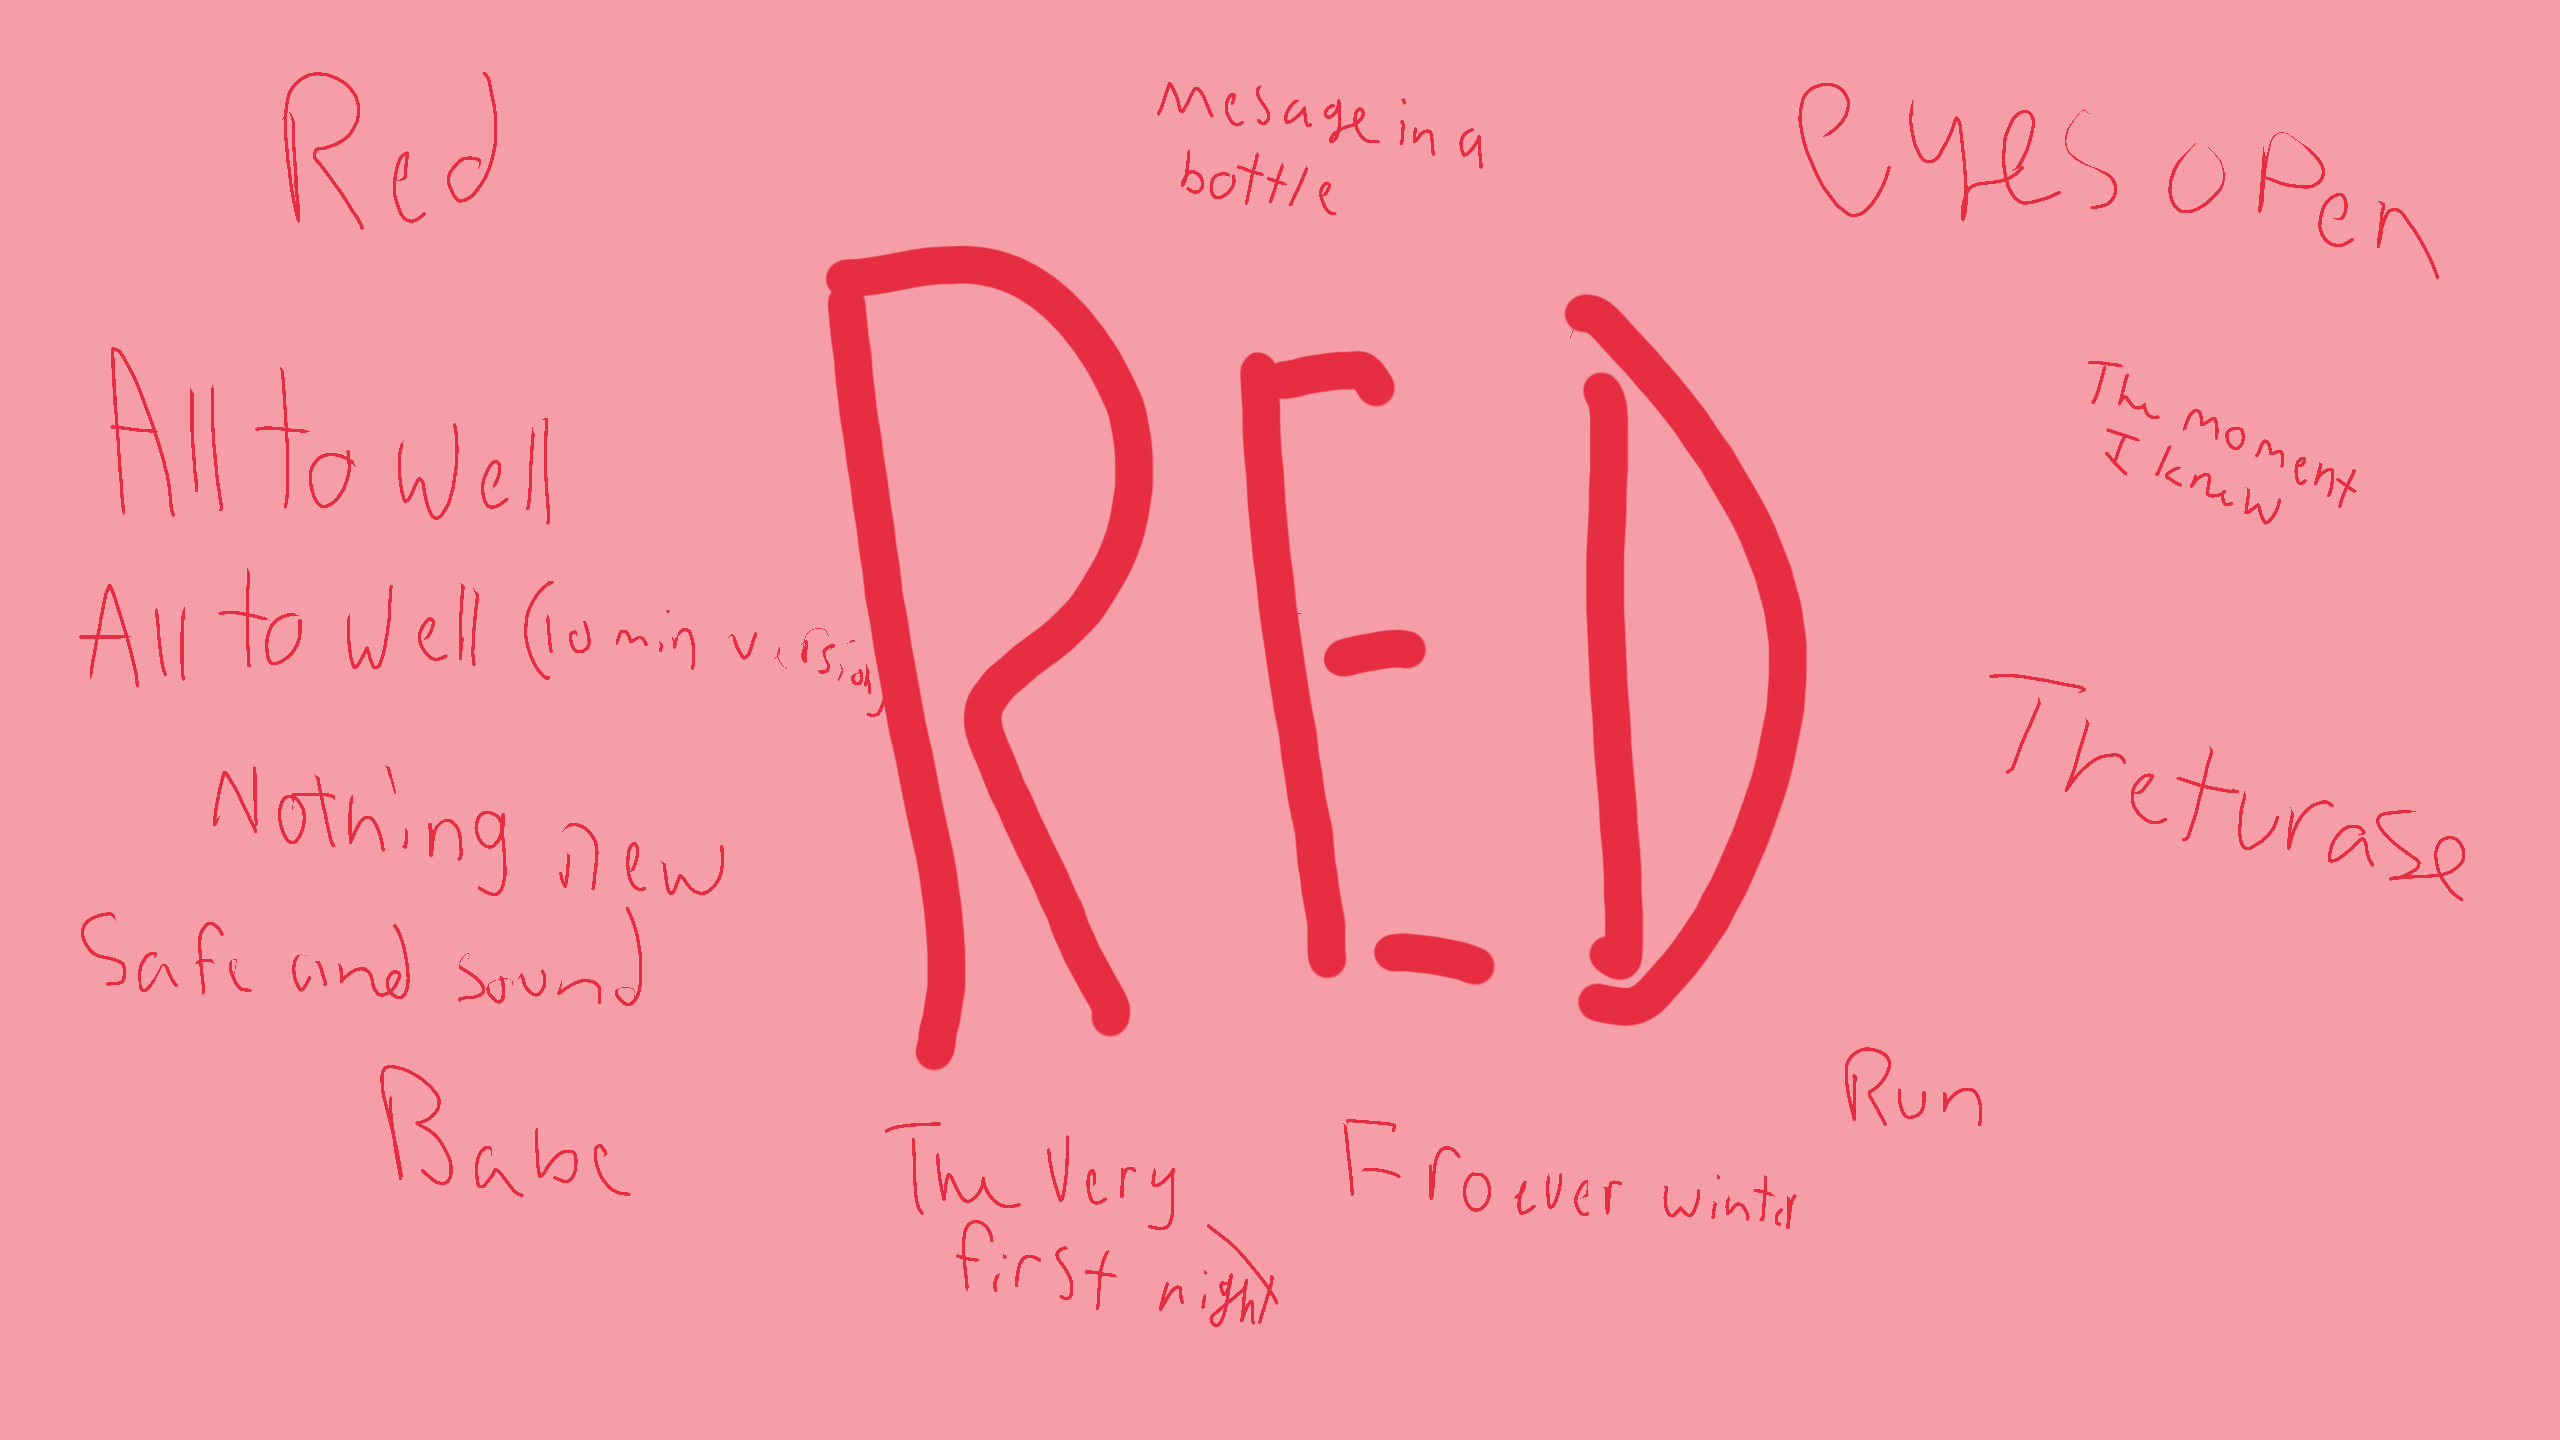 Red
mesage in a
bottle
eyes open
RED
All to well
The moment
I knew
All to well (10 min version)
Treturase
Nothing new
Safe and sound
Babe
Run
The Very
first night
Froever winter